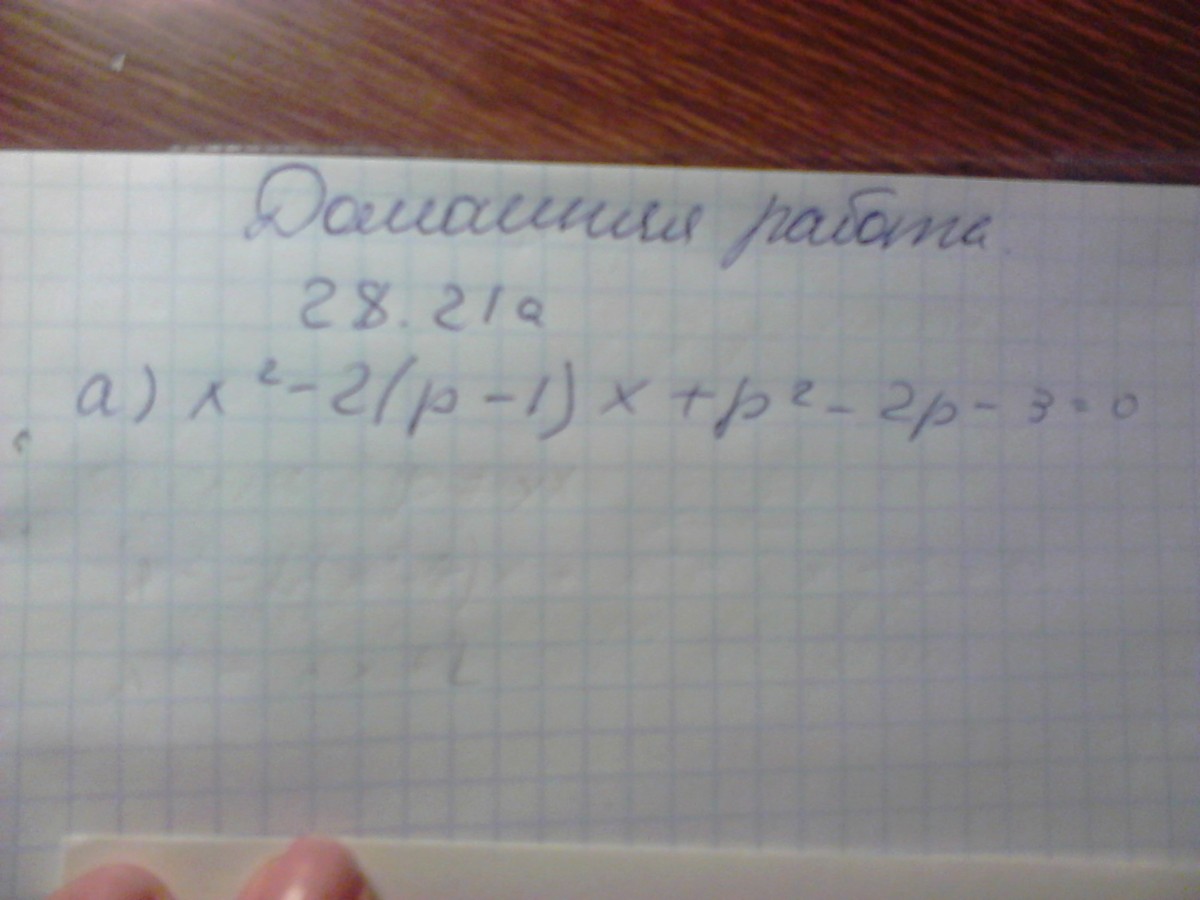 Домашняя работа.
28.21а
а) x² - 2(p - 1) x + p² - 2p - 3 = 0